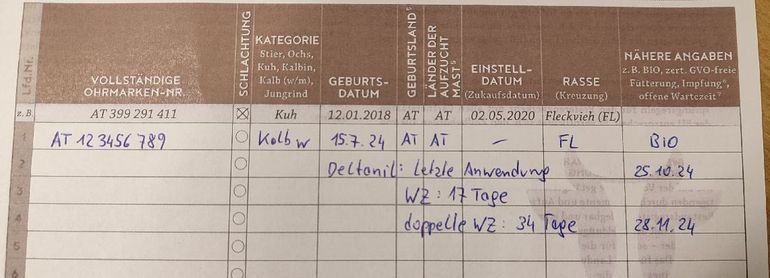 Lfd.Nr.
VOLLSTÄNDIGE OHRMARKEN-NR.
SCHLACHTUNG
KATEGORIE
Stier, Ochs,
Kuh, Kalbin,
Kalb (w/m),
Jungrind
GEBURTS-
DATUM
GEBURTSLAND⁵
LÄNDER DER
AUFZUCHT
MAST⁵
EINSTELL-
DATUM
(Zukaufsdatum)
RASSE
(Kreuzung)
NÄHERE ANGABEN
z. B. BIO, zert. GVO-freie
Fütterung, Impfung⁶,
offene Wartezeit⁷
z. B. AT 399 291 411 Kuh 12.01.2018 AT AT 02.05.2020 Fleckvieh (FL)
1 AT 123456 789 Kalb w 15.7.24 AT AT – FL BIO
2 Deltanil: Letzte Anwendung 25.10.24
3 WZ: 17 Tage
4 doppelte WZ: 34 Tage 28.11.24
5
6